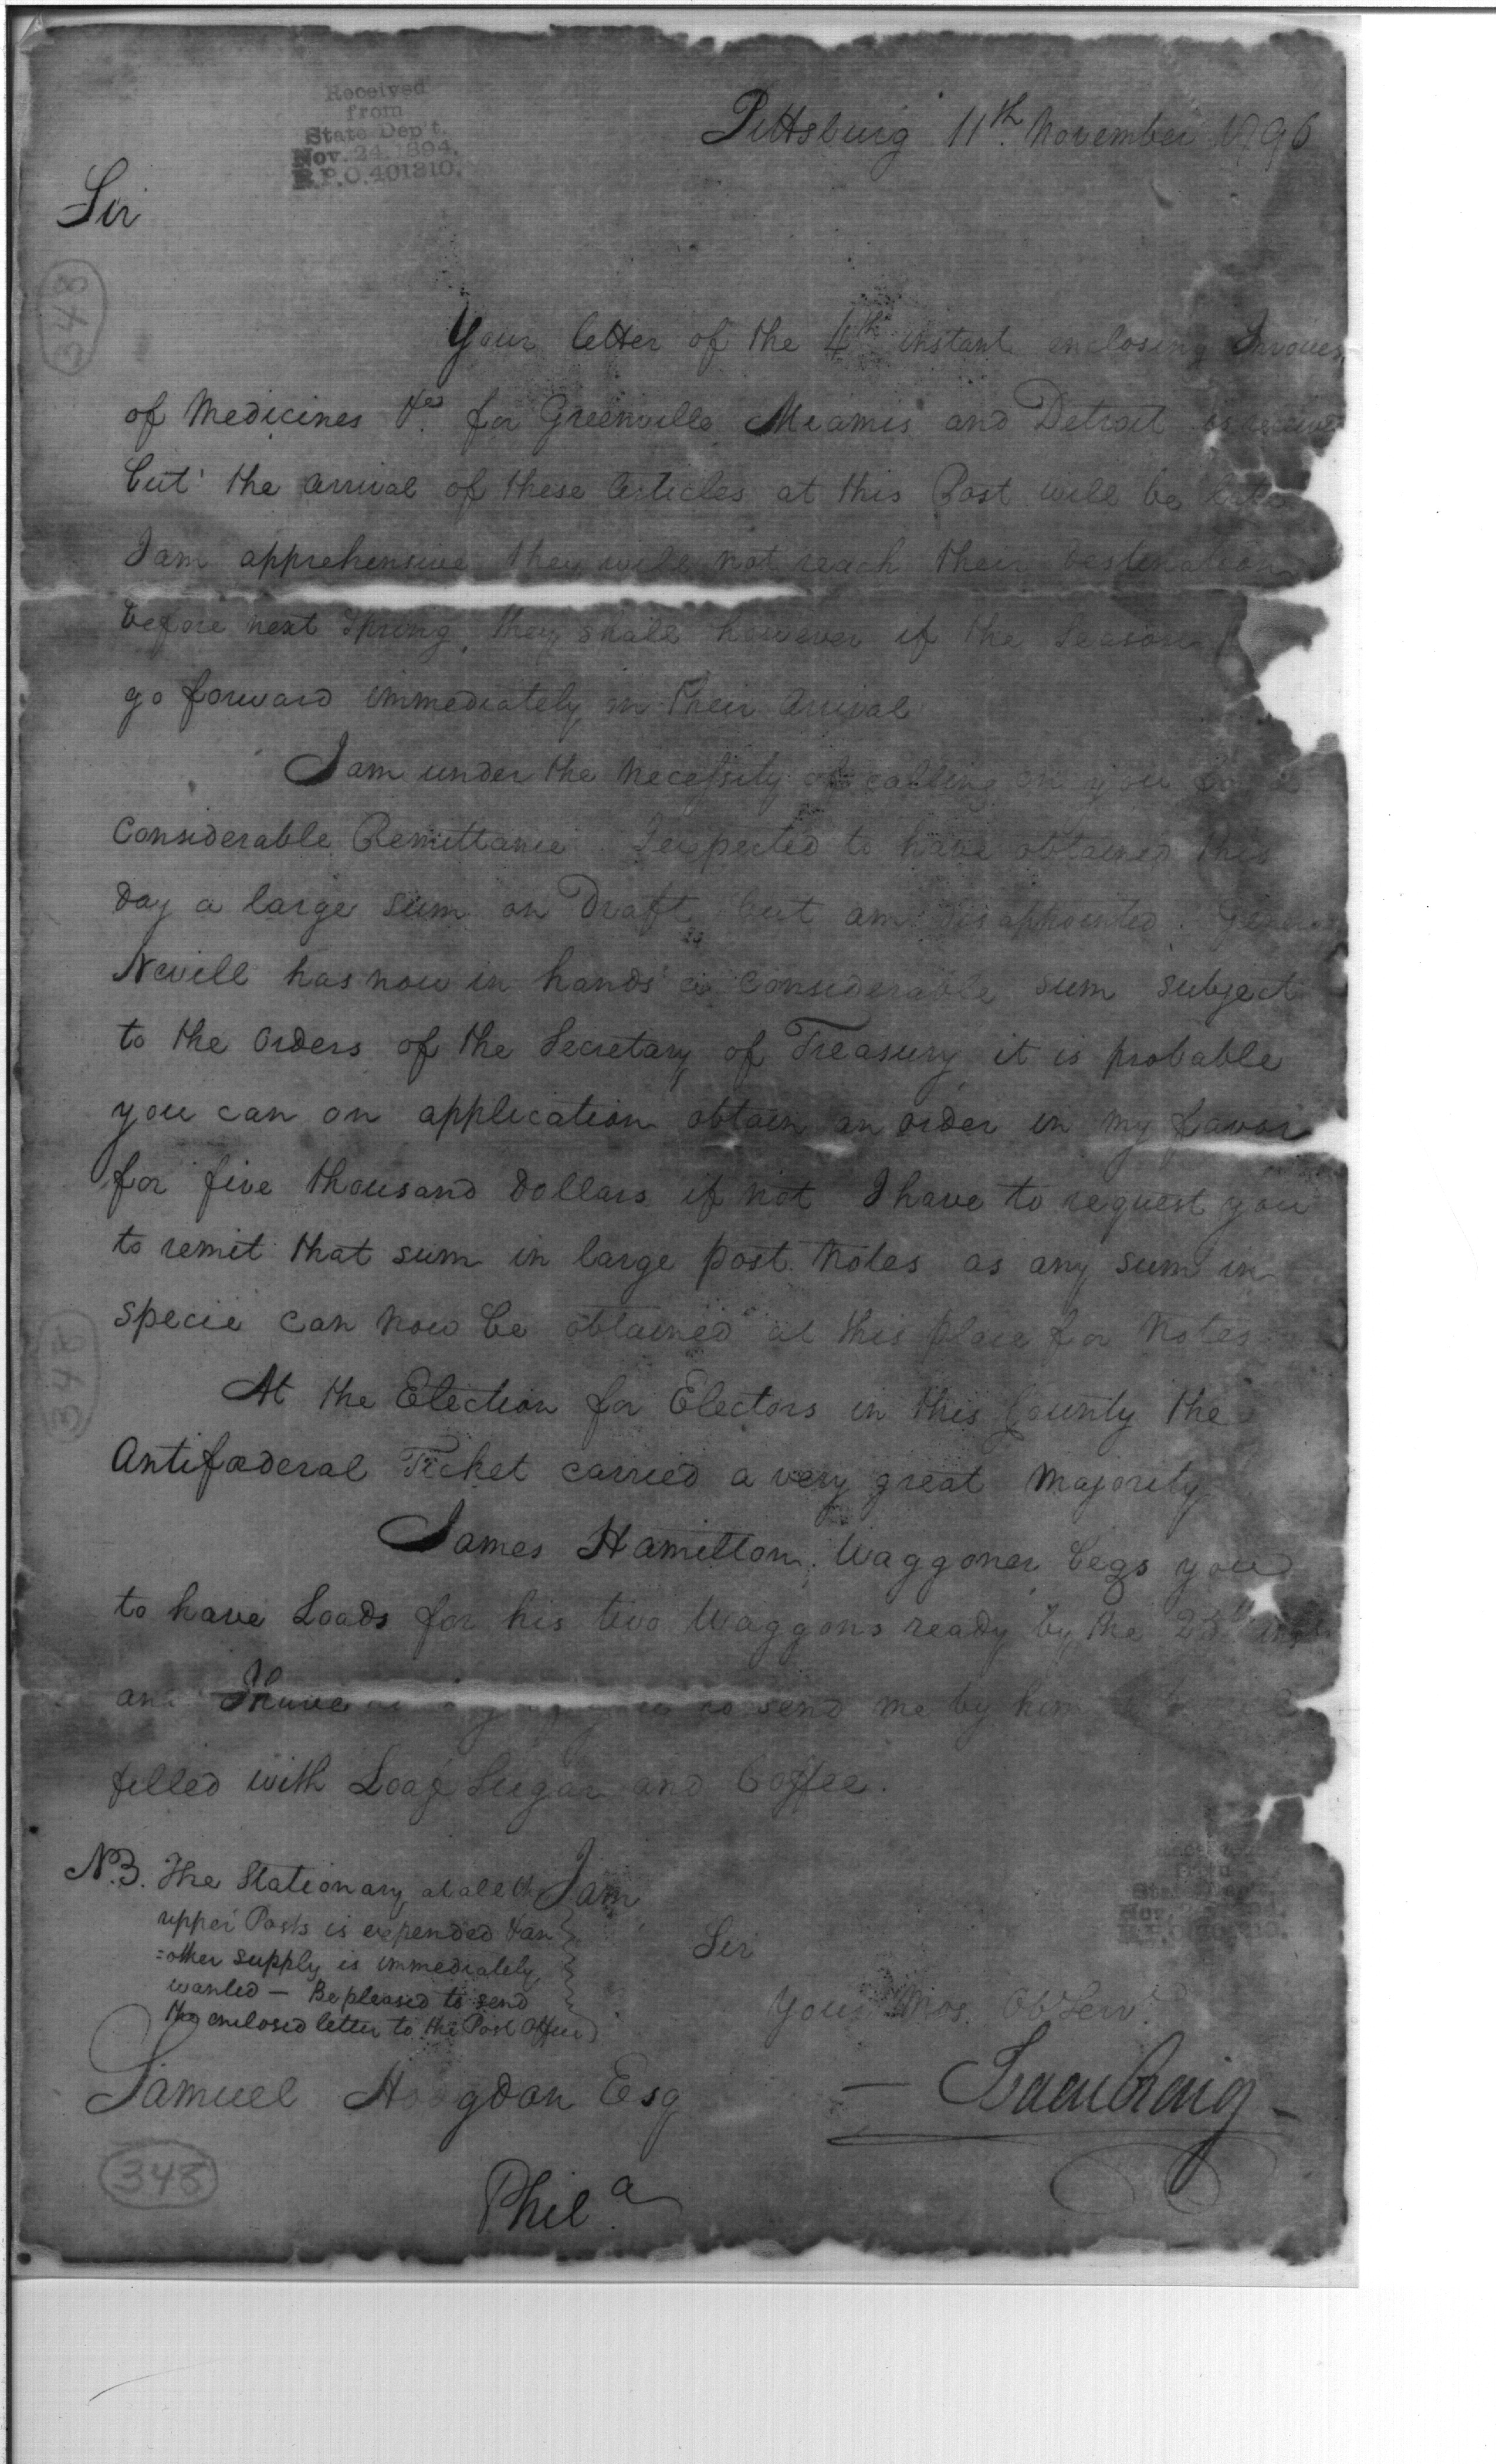 Received
from
State Dep't.
Nov. 24. 1894.
R.P.O. 401310.
Pittsburg 11th. November 1796
Sir
348
Your letter of the 4th instant inclosing Invoices
of Medicines &ca. for Greenville Miamis and Detroit is receiv
but the arrival of these articles at this Post will be late
I am apprehensive they will not reach their destination
before next Spring, they shall however if the Season
go forward immediately on their arrival
I am under the necessity of calling on you for a
Considerable Remittance I expected to have obtained this
day a large sum on Draft but am disappointed. General
Nevill has now in hands a considerable sum subject
to the orders of the Secretary of Treasury it is probable
you can on application obtain an order in my favor
for five thousand dollars if not I have to request you
to remit that sum in large post Notes as any sum in
specie can now be obtained at this place for Notes
348
At the Election for Electors in this County the
Antifœderal Ticket carried a very great Majority
James Hamilton, Waggoner begs you
to have Loads for his two Waggons ready by the 23d inst
and I have to send me by him
filled with Loaf Sugar and Coffee.
N.B. The Stationary at all the
upper Posts is expended & an
=other supply is immediately
wanted — Be pleased to send
the enclosed letter to the Post Office
I am
Sir
Your Mos. Ob Serv.
Samuel Hodgdon Esq
— Isaac Craig —
348
Phila.